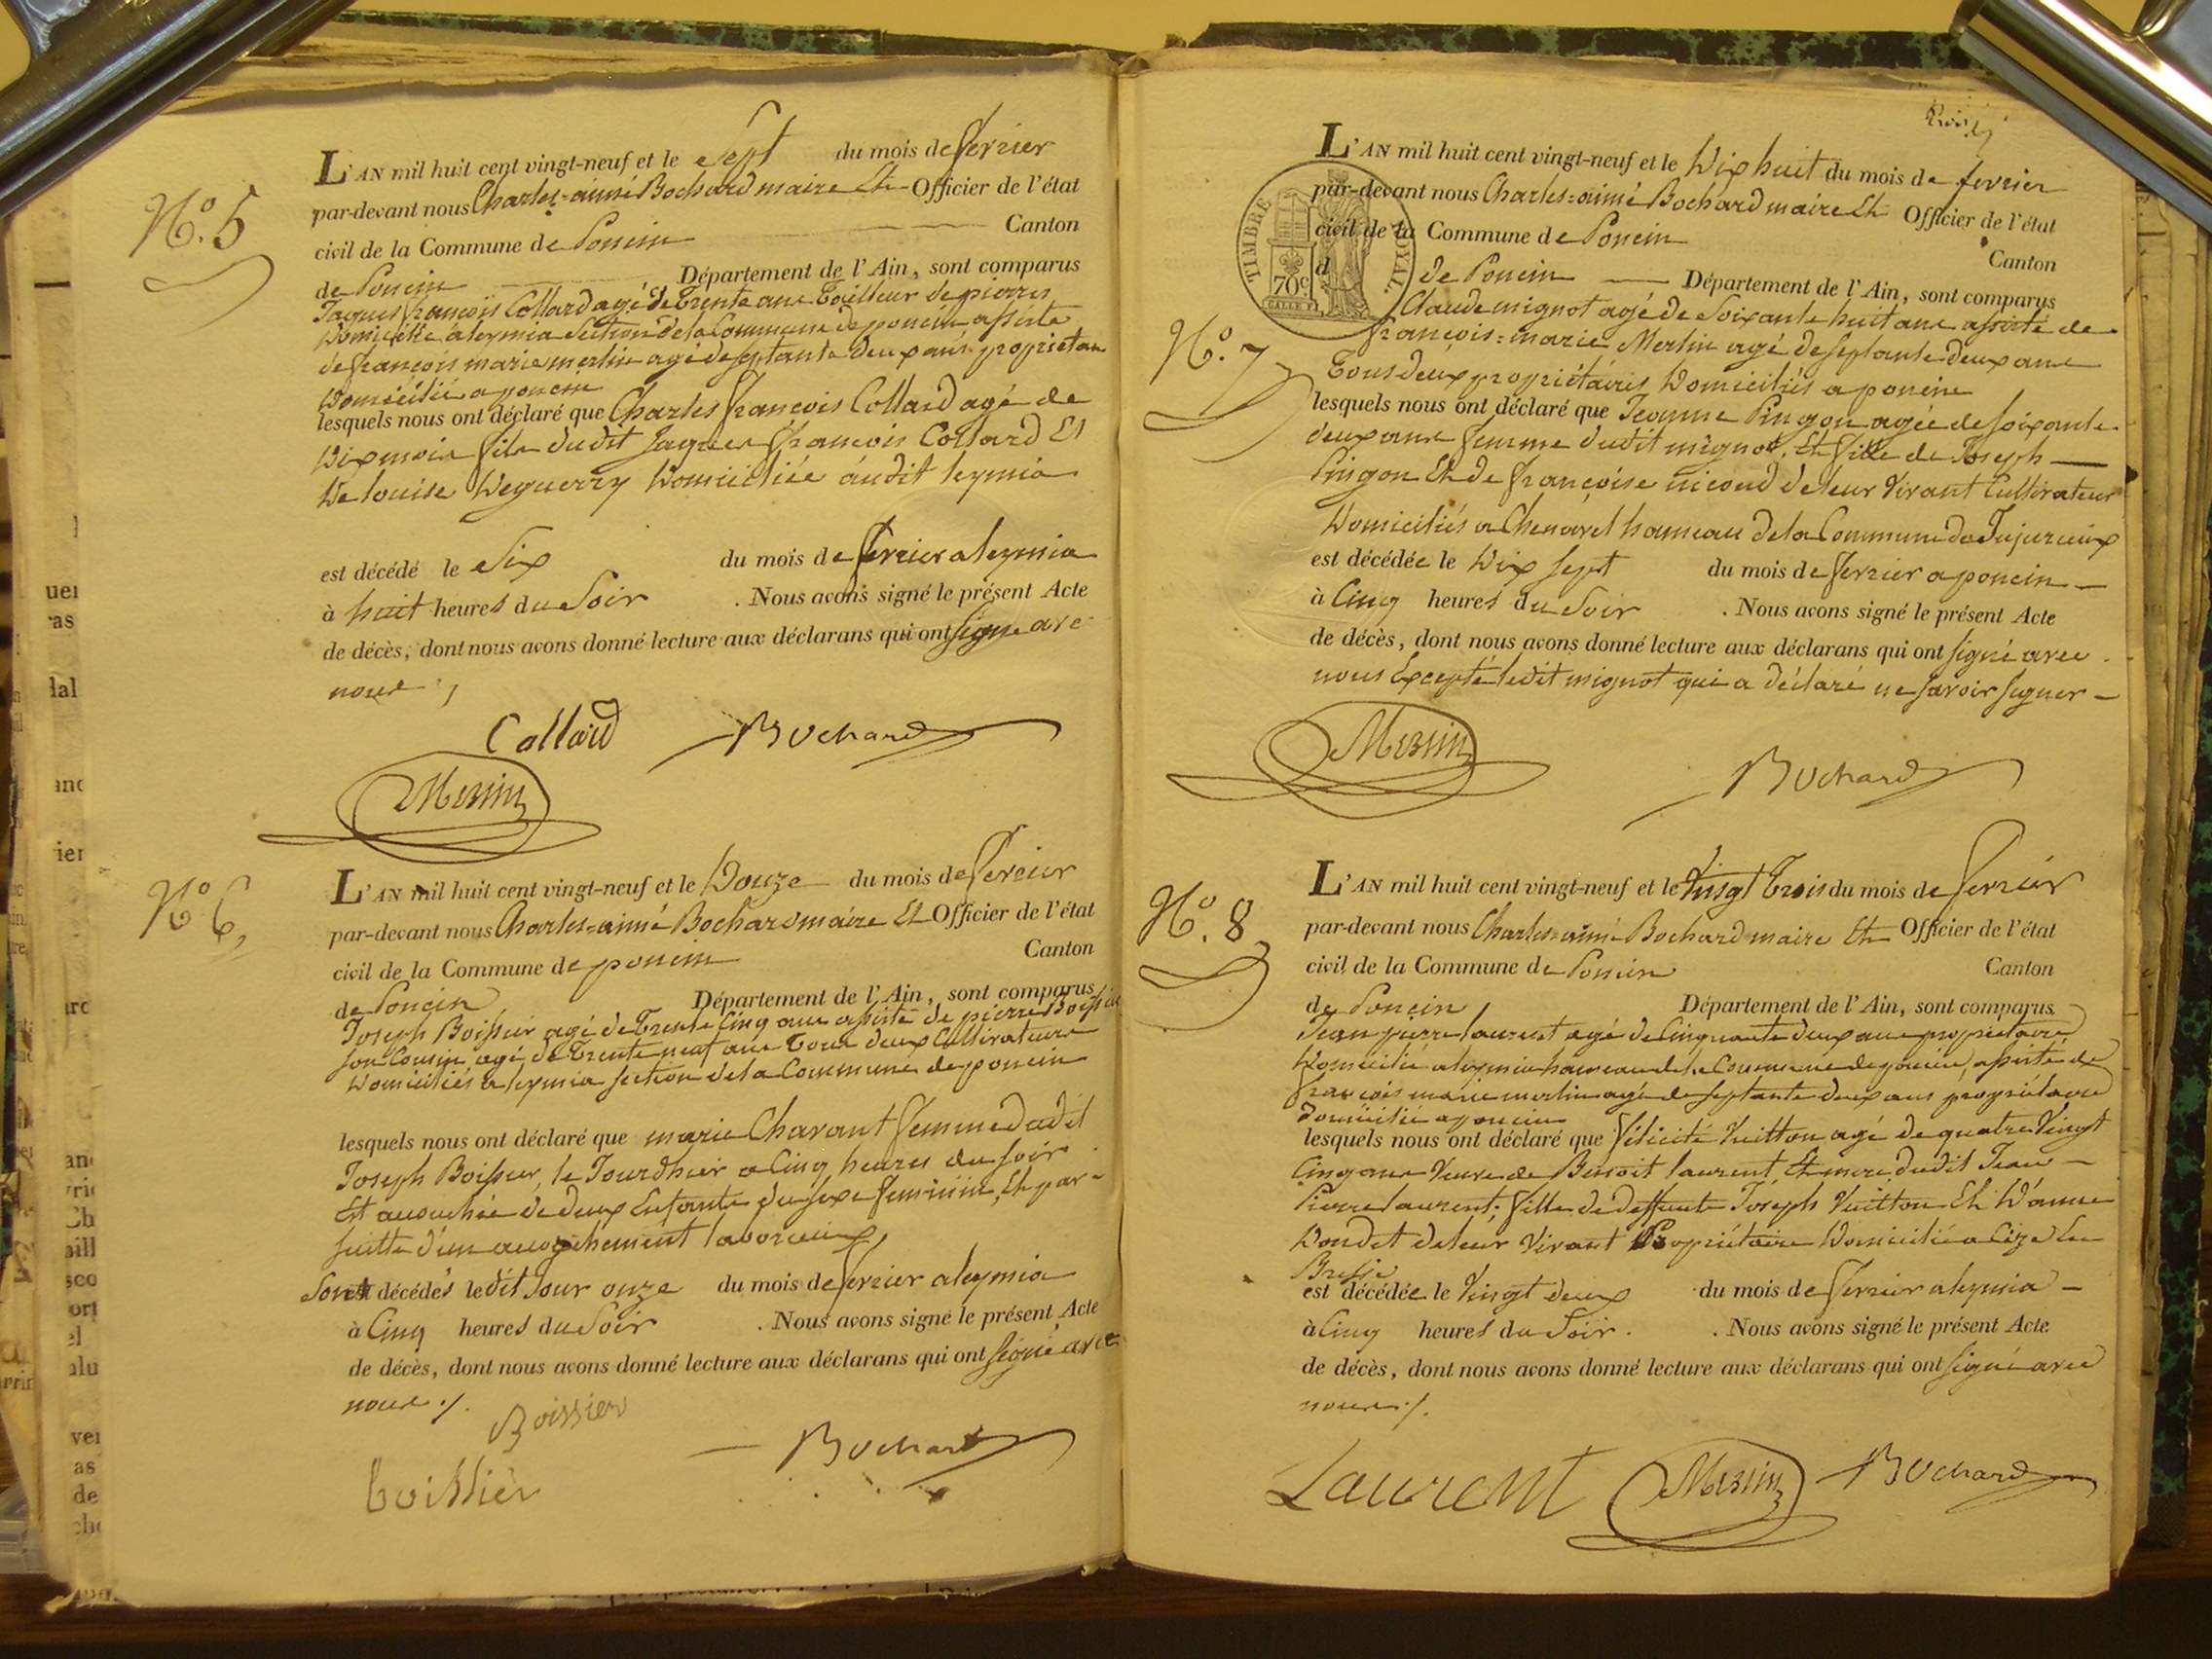 N.o 5
L'AN mil huit cent vingt-neuf et le sept du mois de fevrier
par-devant nous Charles-aimé Bochard maire Et Officier de l'état
civil de la Commune de Poncin Canton
de Poncin Département de l'Ain, sont comparus
Jaques françois Collard agé de Trente ans Tailleur de pierres
Domicilié a leymia Section de la Commune de poncin assisté
de françois marie merlin agé de septante deux ans propriétaire
Domicilié a poncin
lesquels nous ont déclaré que Charles françois Collard agé de
Dix mois fils dudit Jaques françois Collard Et
De louise Deguerry Domiciliée audit leymia
est décédé le Six du mois de fevrier a leymia
à huit heures du Soir . Nous avons signé le présent Acte
de décès, dont nous avons donné lecture aux déclarans qui ont signé avec
nous
Collard Bochard
Merlin
No 6
L'AN mil huit cent vingt-neuf et le Douze du mois de fevrier
par-devant nous Charles=aimé Bochard maire Et Officier de l'état
civil de la Commune de poncin Canton
de Poncin Département de l'Ain, sont comparus
Joseph Boissier agé de Trente Cinq ans assisté de pierre Boissier
son Cousin agé de Trente neuf ans Tous deux Cultivateurs
Domiciliés a leymia section de la Commune de poncin
lesquels nous ont déclaré que marie Charant femme dudit
Joseph Boissier, le Jour d'hier a Cinq heures du soir
Est accouchée de deux Enfants du sexe feminin, Et par
suitte d'un accouchement laborieux
Sont décédés ledit Jour onze du mois de fevrier a leymia
à Cinq heures du Soir . Nous avons signé le présent Acte
de décès, dont nous avons donné lecture aux déclarans qui ont signé avec
nous ./.
Boissier
boissier Bochard
L'AN mil huit cent vingt-neuf et le Dix huit du mois de fevrier
par-devant nous Charles=aimé Bochard maire Et Officier de l'état
civil de la Commune de Poncin Canton
d de Poncin Département de l'Ain, sont comparus
TIMBRE ROYAL
70c
N.o 7
Claude mignot agé de Soixante huit ans assisté de
françois=marie Merlin agé de septante deux ans
Tous deux propriétaires Domiciliés a poncin
lesquels nous ont déclaré que Jeanne Pingon agée de soixante
deux ans femme dudit mignot, Et fille de Joseph
Pingon Et de françoise nicoud de leur Vivant Cultivateurs
Domiciliés a Chenavel hameau de la Commune de Jujurieux
est décédée le Dix sept du mois de fevrier a poncin
à Cinq heures du Soir . Nous avons signé le présent Acte
de décès, dont nous avons donné lecture aux déclarans qui ont signé avec
nous Excepté ledit mignot qui a déclaré ne savoir signer
Merlin
Bochard
N.o 8
L'AN mil huit cent vingt-neuf et le Vingt Trois du mois de fevrier
par-devant nous Charles=aimé Bochard maire Et Officier de l'état
civil de la Commune de Poncin Canton
de Poncin Département de l'Ain, sont comparus
Jean pierre laurent agé de Cinquante deux ans propriétaire
Domicilié a leymia hameau de la Commune de poncin, assisté de
françois marie merlin agé de septante deux ans propriétaire
Domicilié a poncin
lesquels nous ont déclaré que félicité Vuitton agé de quatre Vingt
Cinq ans Veuve de Benoit laurent, Et mere dudit Jean
Pierre laurent; fille de deffunts Joseph Vuitton Et D'anne
Dondet de leur Vivant Propriétaire Domicilié a Cize En
Bresse
est décédée le Vingt deux du mois de fevrier a leymia
à Cinq heures du Soir . . Nous avons signé le présent Acte
de décès, dont nous avons donné lecture aux déclarans qui ont signé avec
nous ./.
Laurent Merlin Bochard